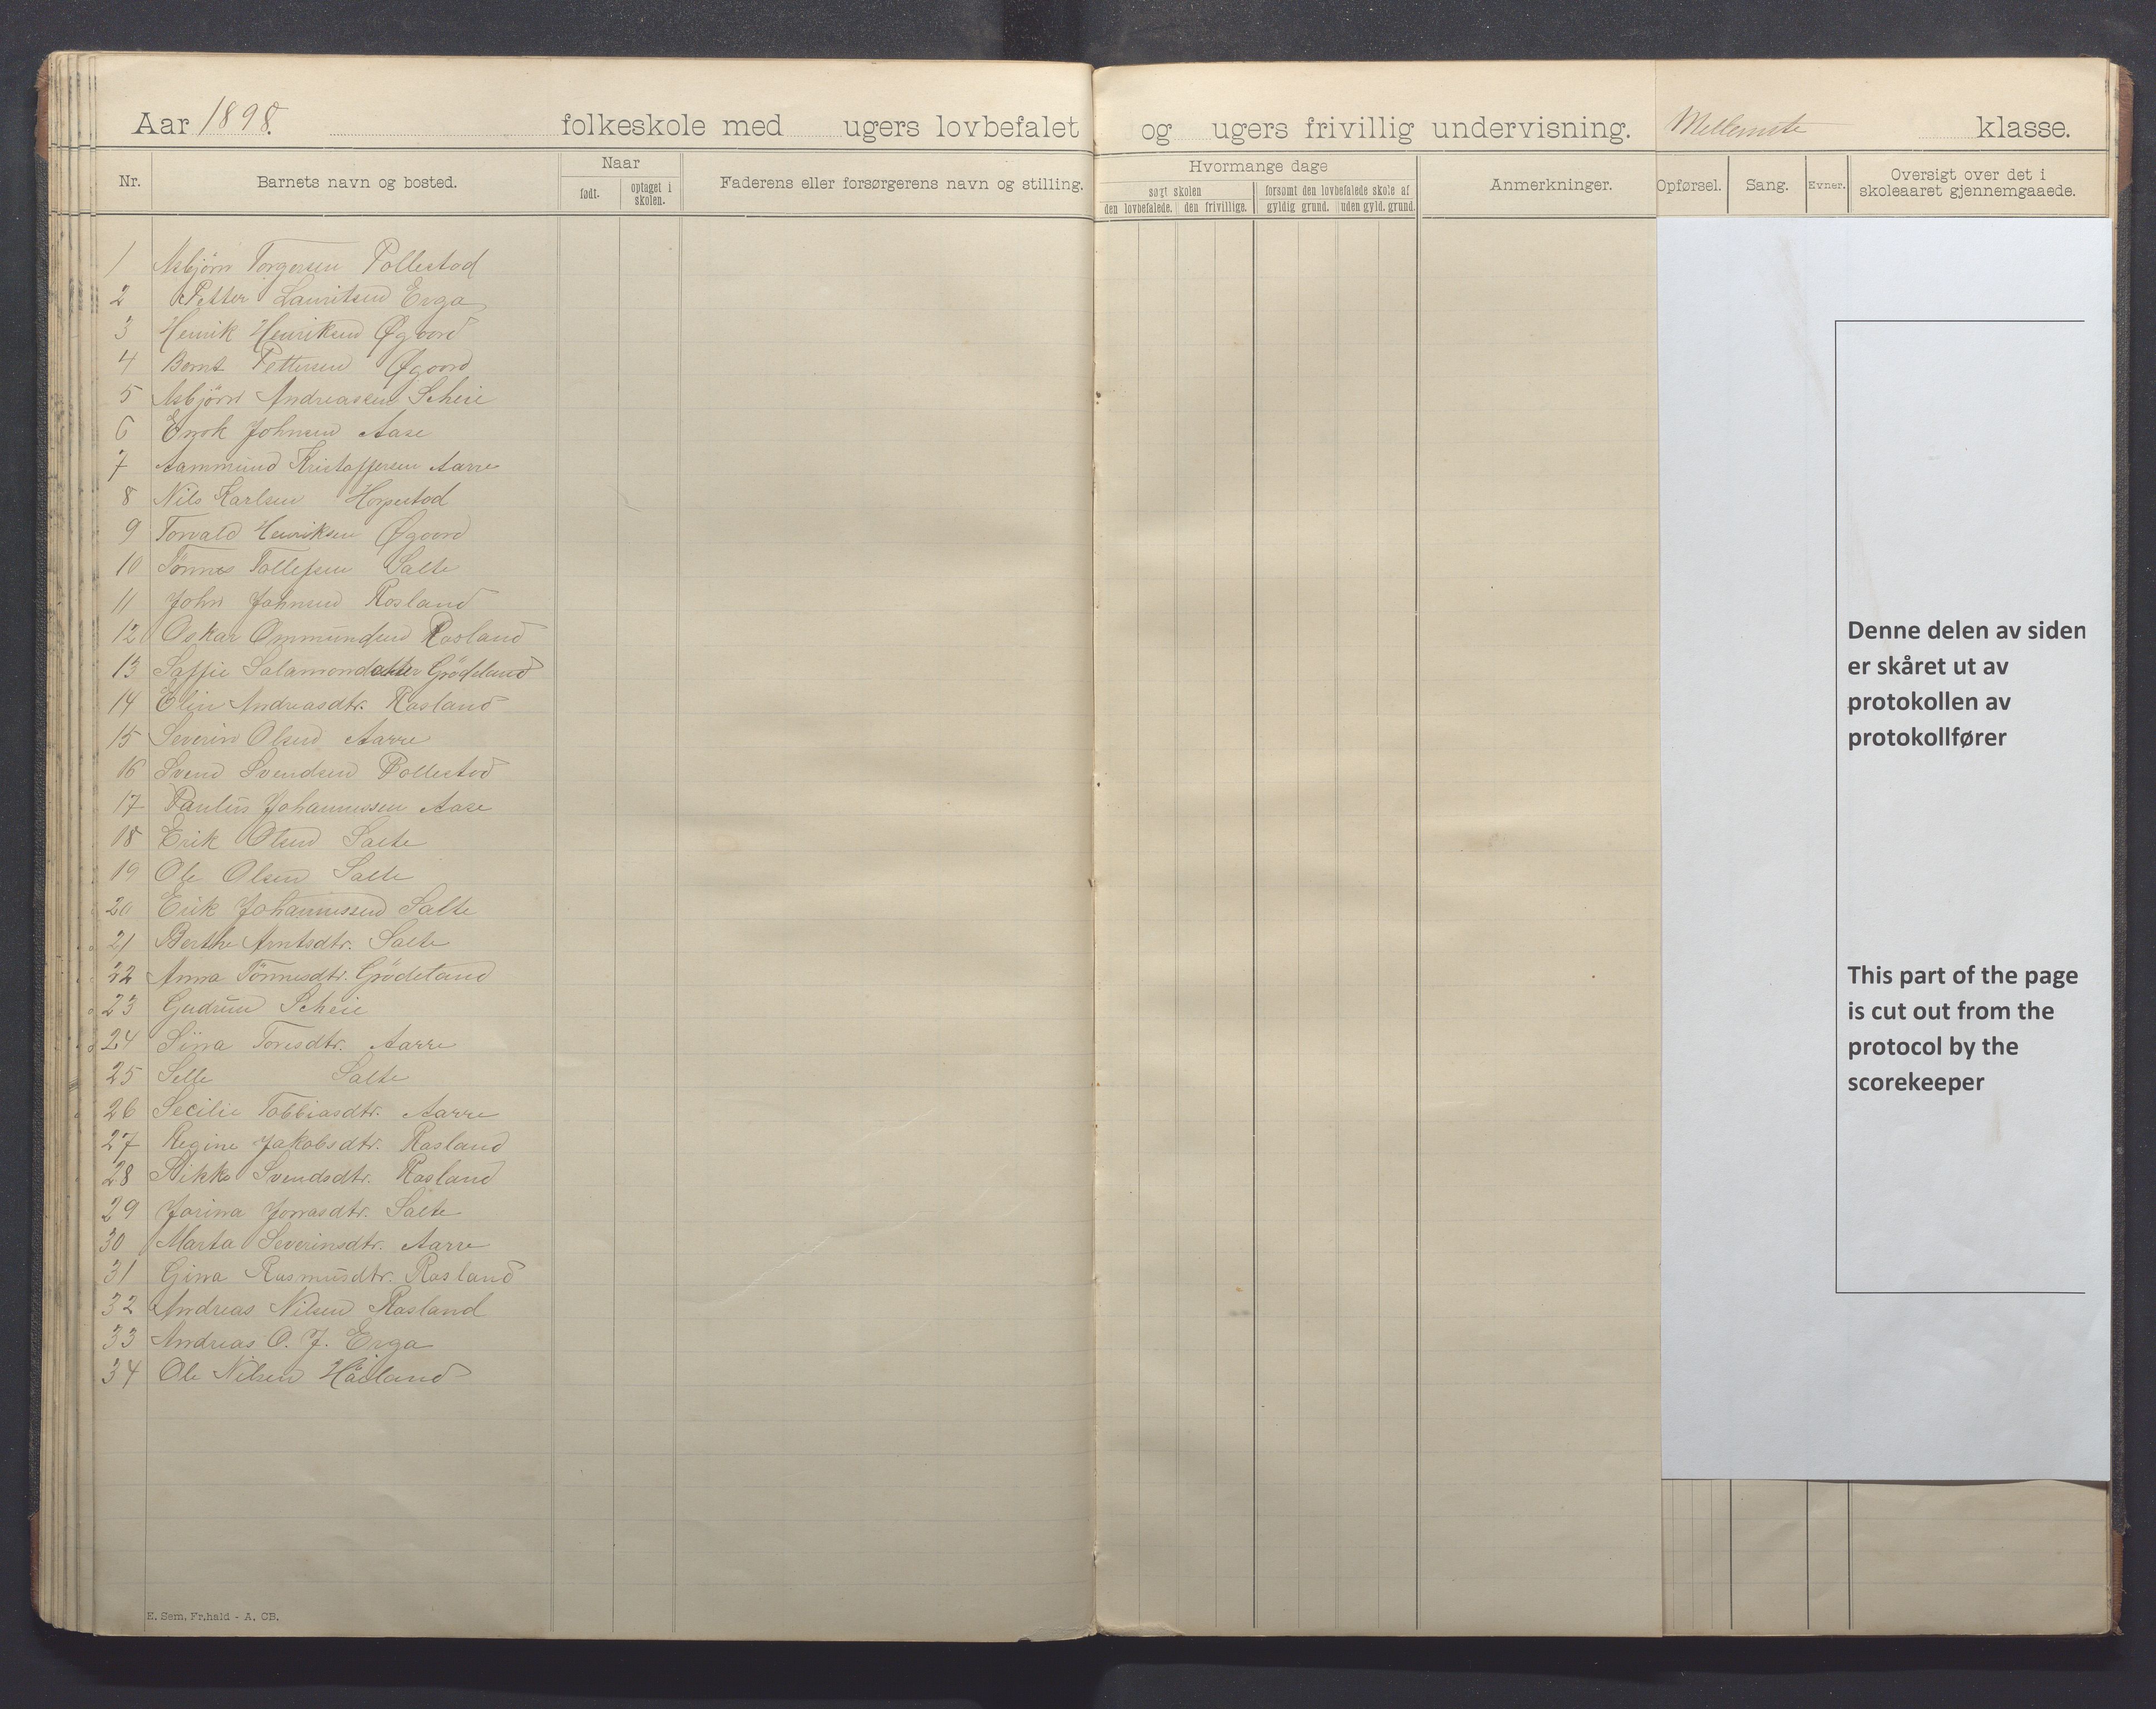 Aar 1898. folkeskole med ugers lovbefalet og ugers frivillig undervisning. Mellemste klasse.
Nr. Barnets navn og bosted. Naar født. optaget i skolen. Faderens eller forsørgerens navn og stilling. Hvormange dage søgt skolen den lovbefalede. den frivillige. forsømt den lovbefalede skole af gyldig grund. uden gyld. grund. Anmerkninger. Opførsel. Sang. Evner. Oversigt over det i skoleaaret gjennemgaaede.
1 Asbjörn Torgersen Pollestad
2 Petter Lauritsen Erga
3 Henrik Henriksen Øgaard
4 Bernt Pettersen Øgaard
5 Asbjörn Andreassen Scheie
6 Enok Johnsen Aase
7 Aammund Kristoffersen Aarre
8 Nils Karlsen Horpestad
9 Torvald Henriksen Øgaard
10 Tönnes Tollefsen Salte
11 John Johnsen Rosland
12 Oskar Ommundsen Rosland
13 Saffie Salamondatter Grödeland
14 Elin Andreasdtr. Rosland
15 Severin Olsen Aarre
16 Svend Svendsen Pollestad
17 Paulus Johannessen Aase
18 Erik Olsen Salte
19 Ole Olsen Salte
20 Erik Johannessen Salte
21 Berthe Arntsdtr. Salte
22 Anna Tönnesdtr. Grödeland
23 Gudrun Scheie
24 Sina Toresdtr. Aarre
25 Selle Salte
26 Secilie Tobbiasdtr. Aarre
27 Regine Jakobsdtr. Rosland
28 Rikke Svendsdtr. Rosland
29 Jorina Jonasdtr. Salte
30 Marta Severinsdtr. Aarre
31 Gina Rasmusdtr. Rosland
32 Andreas Nilsen Rosland
33 Andreas O. J. Erga
34 Ole Nilsen Håland
Denne delen av siden
er skåret ut av
protokollen av
protokollfører
This part of the page
is cut out from the
protocol by the
scorekeeper
E. Sem, Fr.hald - A. CB.